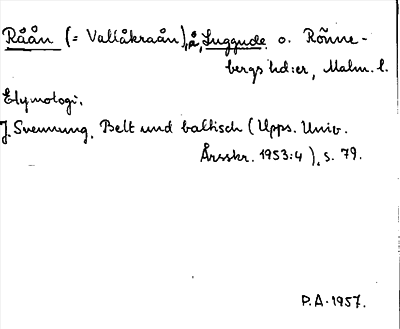 Råån (= Vallåkraån), å, Luggude o. Rönne-
bergs hd:er, Malm. l.
Etymologi.
J. Svennung, Belt und baltisch (Upps. Univ.
Årsskr. 1953:4), s. 79.
P.A. 1957.